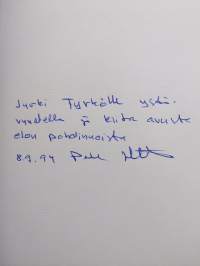 Jyrki Tyrkölle ystä-
vyydellä ja kiitä avusta
elon pohdinnoista
8.9.94